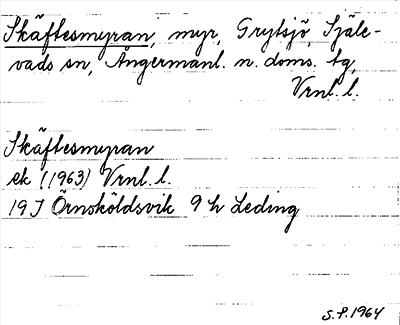 Skäftesmyran, myr, Grytsjö, Själe-
vads sn, Ångermanl. n. doms. tg,
Vrnl. l.
Skäftesmyran
ek (1963) Vrnl. l.
19 J Örnsköldsvik 9 h Leding
S.P. 1964